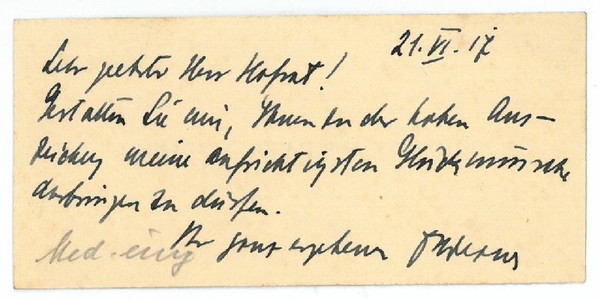 21. VI. 17
Sehr geehrter Herr Hofrat!
Gestatten Sie mir, Ihnen zu der hohen Aus-
zeichng meine aufrichtigsten Glückwünsche
darbringen zu dürfen.
Ihr ganz ergebener
Med.